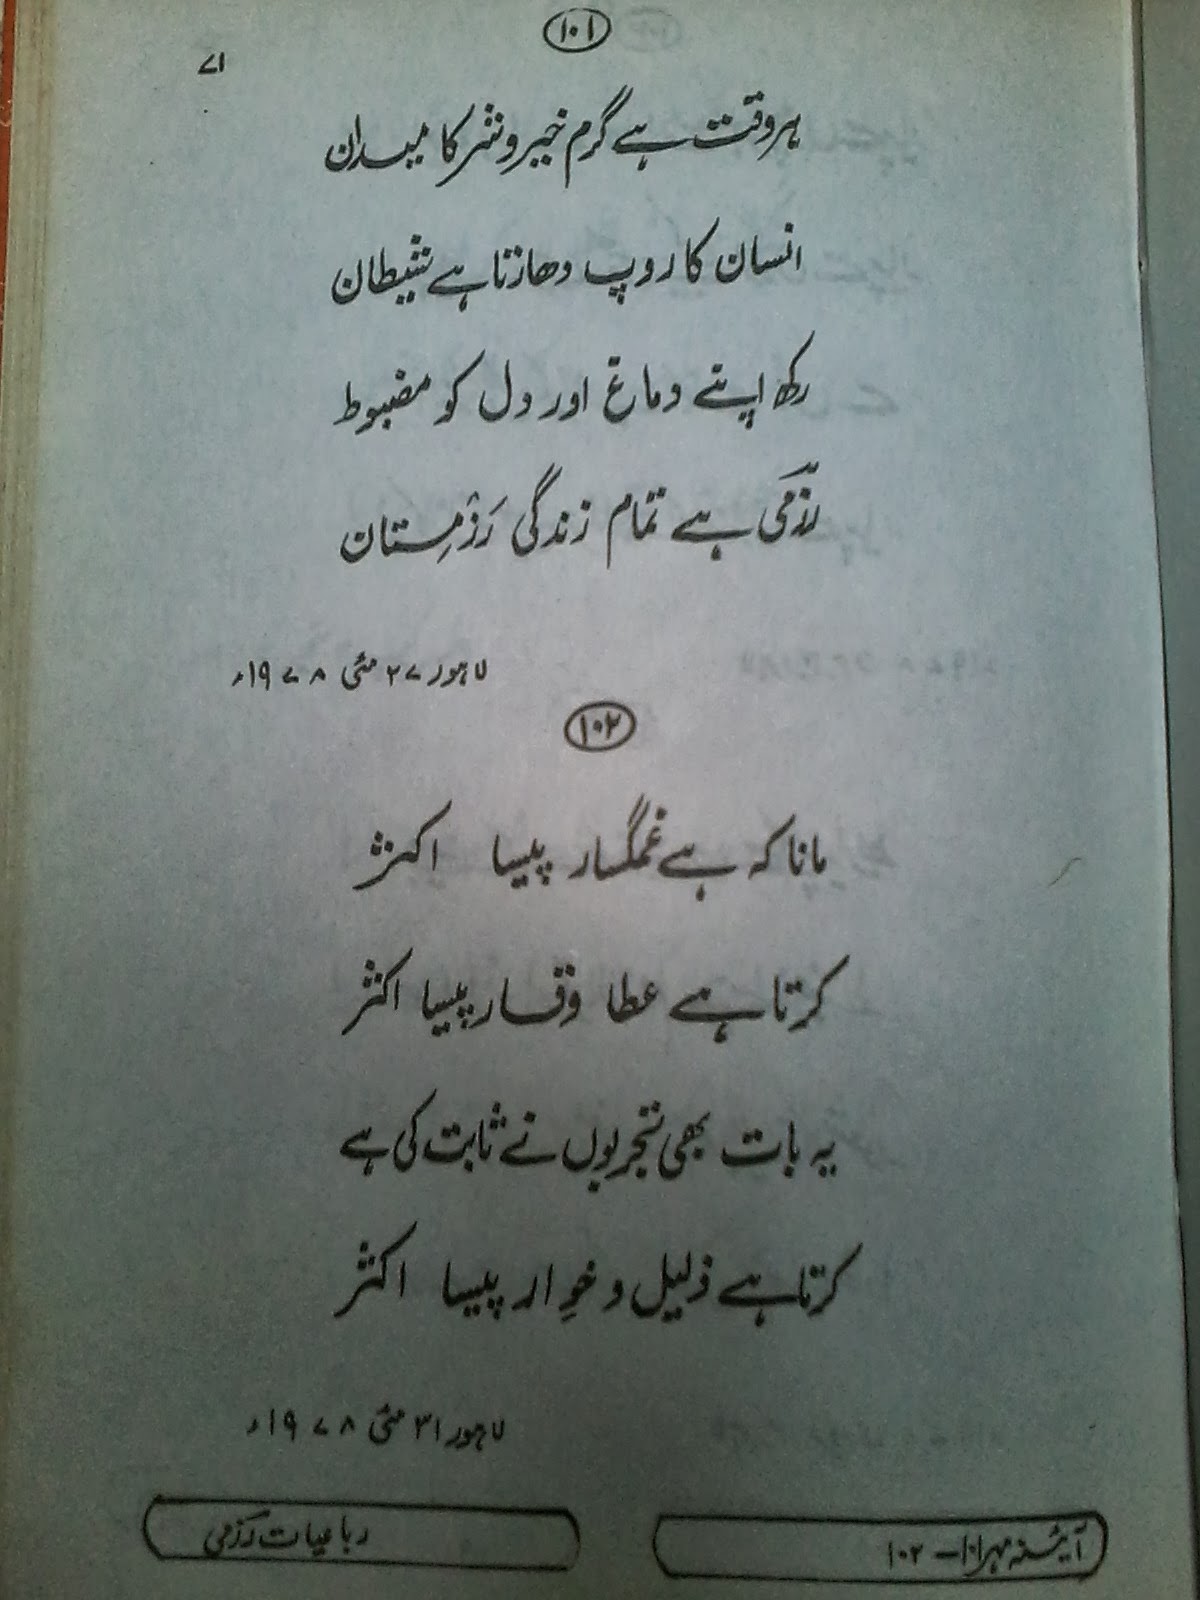 ۱۰۱
۷۱
ہر وقت ہے گرم خیر و شر کا میدان
انسان کا روپ دھارتا ہے شیطان
رکھ اپنے دماغ اور دل کو مضبوط
رزمی ہے تمام زندگی رَزْمِستان
لاہور ۲۷ مئی ۱۹۷۸ء
۱۰۲
مانا کہ ہے غمگسار پیسا اکثر
کرتا ہے عطا وقار پیسا اکثر
یہ بات بھی تجربوں نے ثابت کی ہے
کرتا ہے ذلیل و خوار پیسا اکثر
لاہور ۳۱ مئی ۱۹۷۸ء
رباعیات رزمی
آئینہ مہر ۱۰۱ – ۱۰۲